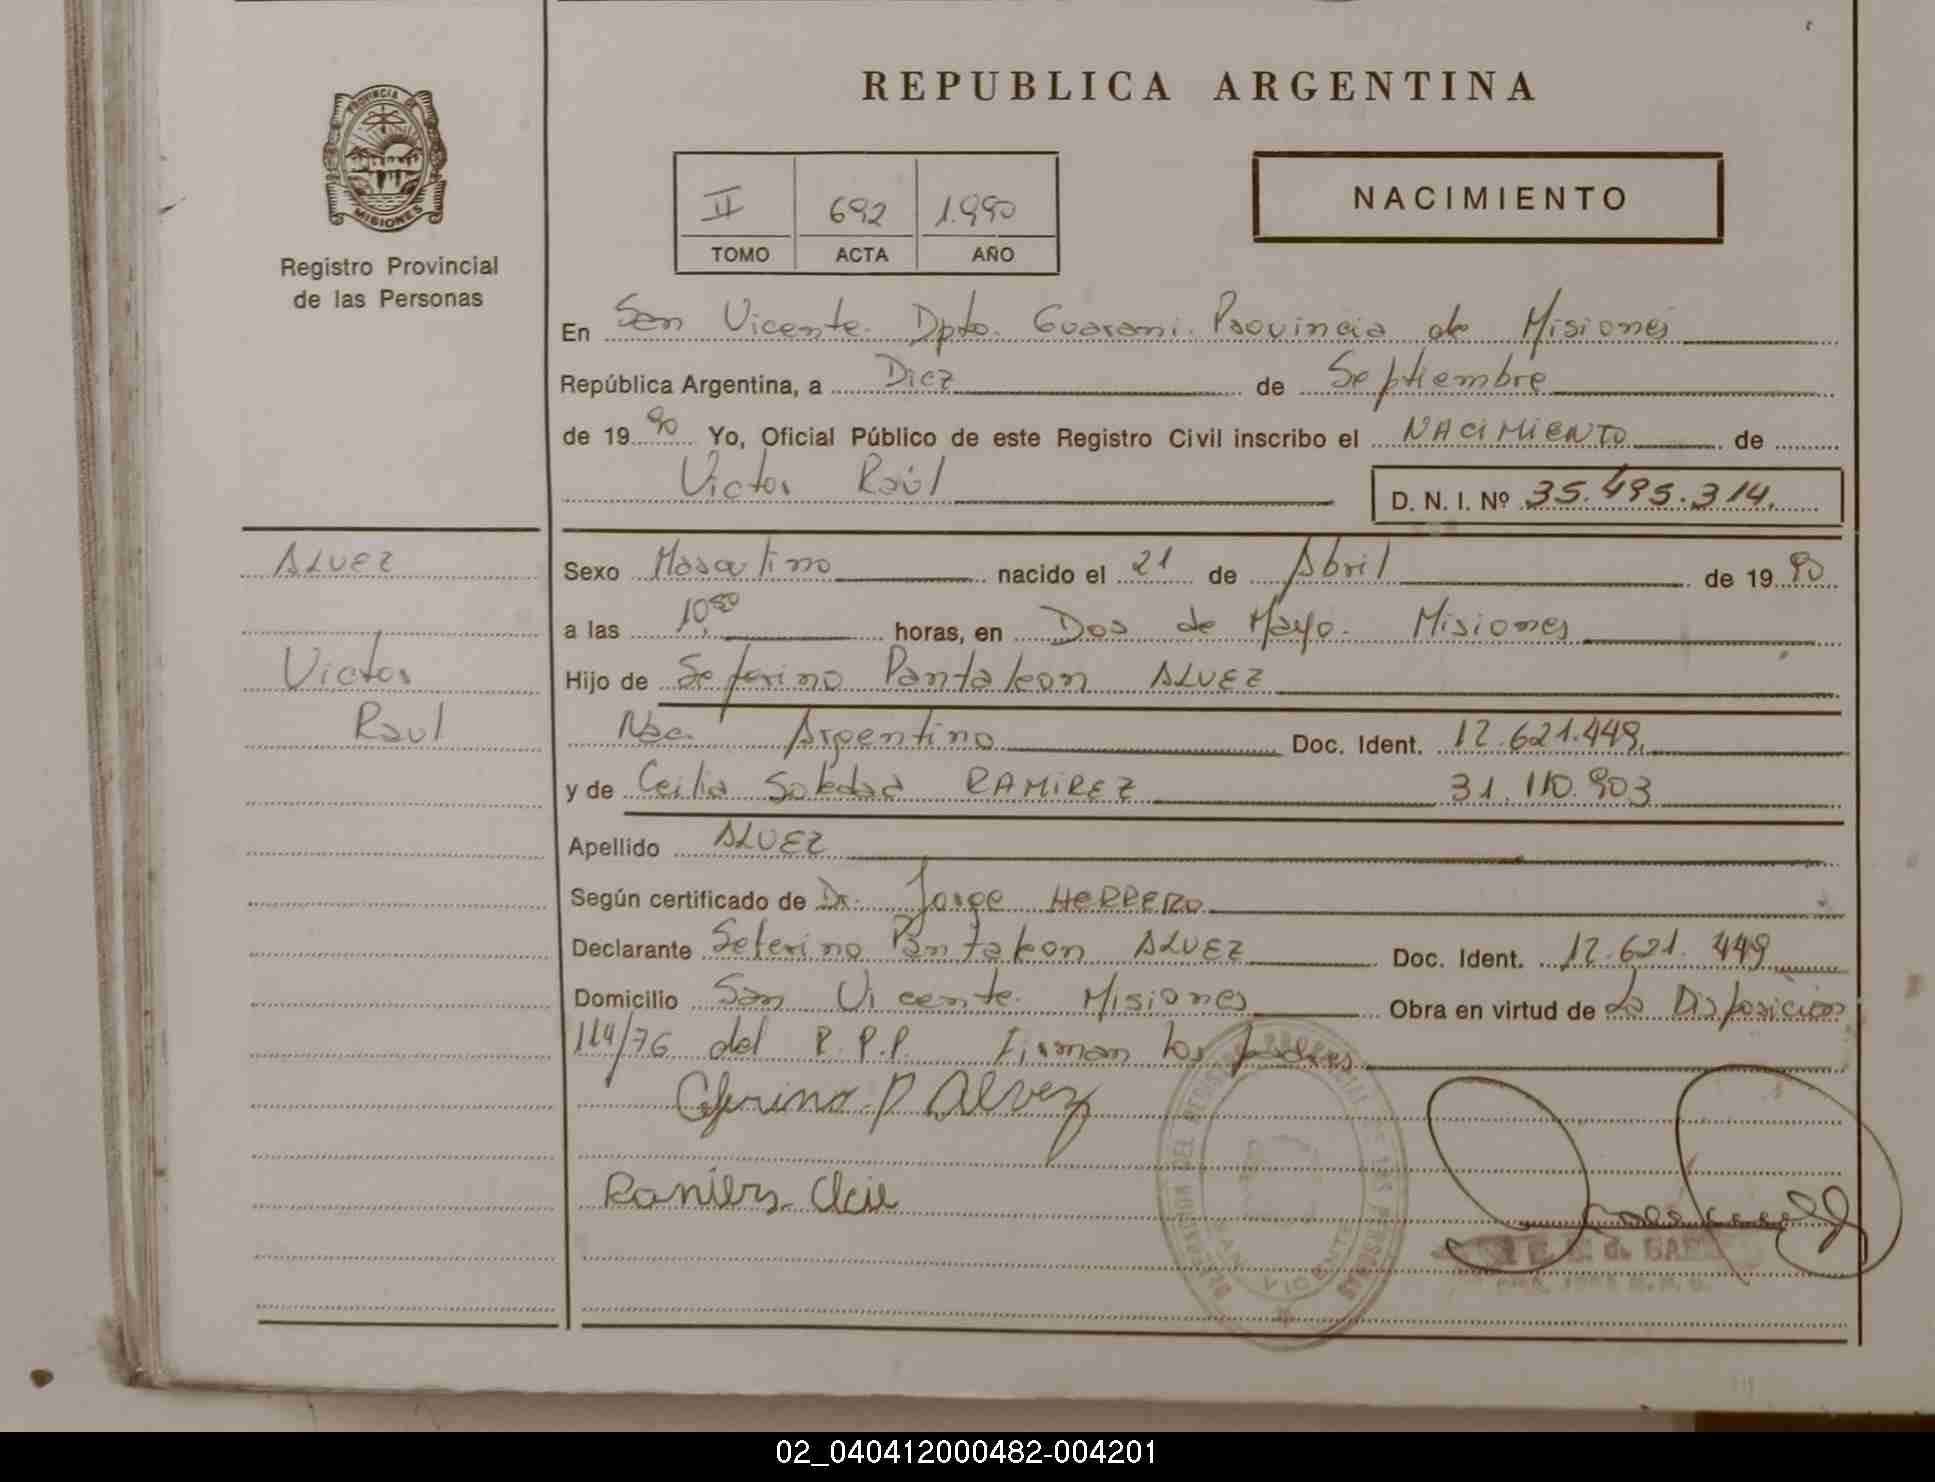 PROVINCIA DE
MISIONES
Registro Provincial
de las Personas
REPUBLICA ARGENTINA
II 692 1.990
TOMO ACTA AÑO
NACIMIENTO
En San Vicente. Dpto. Guarani. Provincia de Misiones
República Argentina, a Diez de Septiembre
de 19 90 Yo, Oficial Público de este Registro Civil inscribo el NACIMIENTO de
Victor Raúl
D. N. I. Nº 35.495.314.
ALVEZ
Victor
Raul
Sexo Masculino nacido el 21 de Abril de 19 90
a las horas, en Dos de Mayo. Misiones
Hijo de Seferino Pantaleon ALVEZ
Nac. Argentino Doc. Ident. 12.621.449.
y de Cecilia Soledad RAMIREZ 31.110.903
Apellido ALVEZ
Según certificado de Dr. Jorge HERRERO
Declarante Seferino Pantaleon ALVEZ Doc. Ident. 12.621.449
Domicilio San Vicente. Misiones Obra en virtud de La Disposición
114/76 del R.P.P. Firman los padres
Ceferino P Alvez
DEL REGISTRO PROVINCIAL DE LAS PERSONAS
SAN VICENTE
02_040412000482-004201